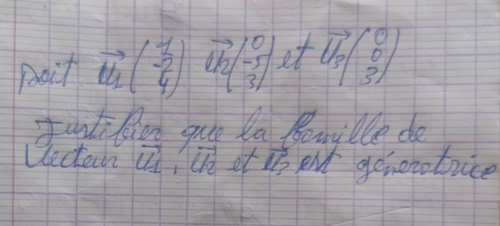 soit u⃗1 (1 -2 4) u⃗2 (0 -5 3) et u⃗3 (0 0 3)
Justifier que la famille de
vecteur u⃗1, u⃗2 et u⃗3 est génératrice